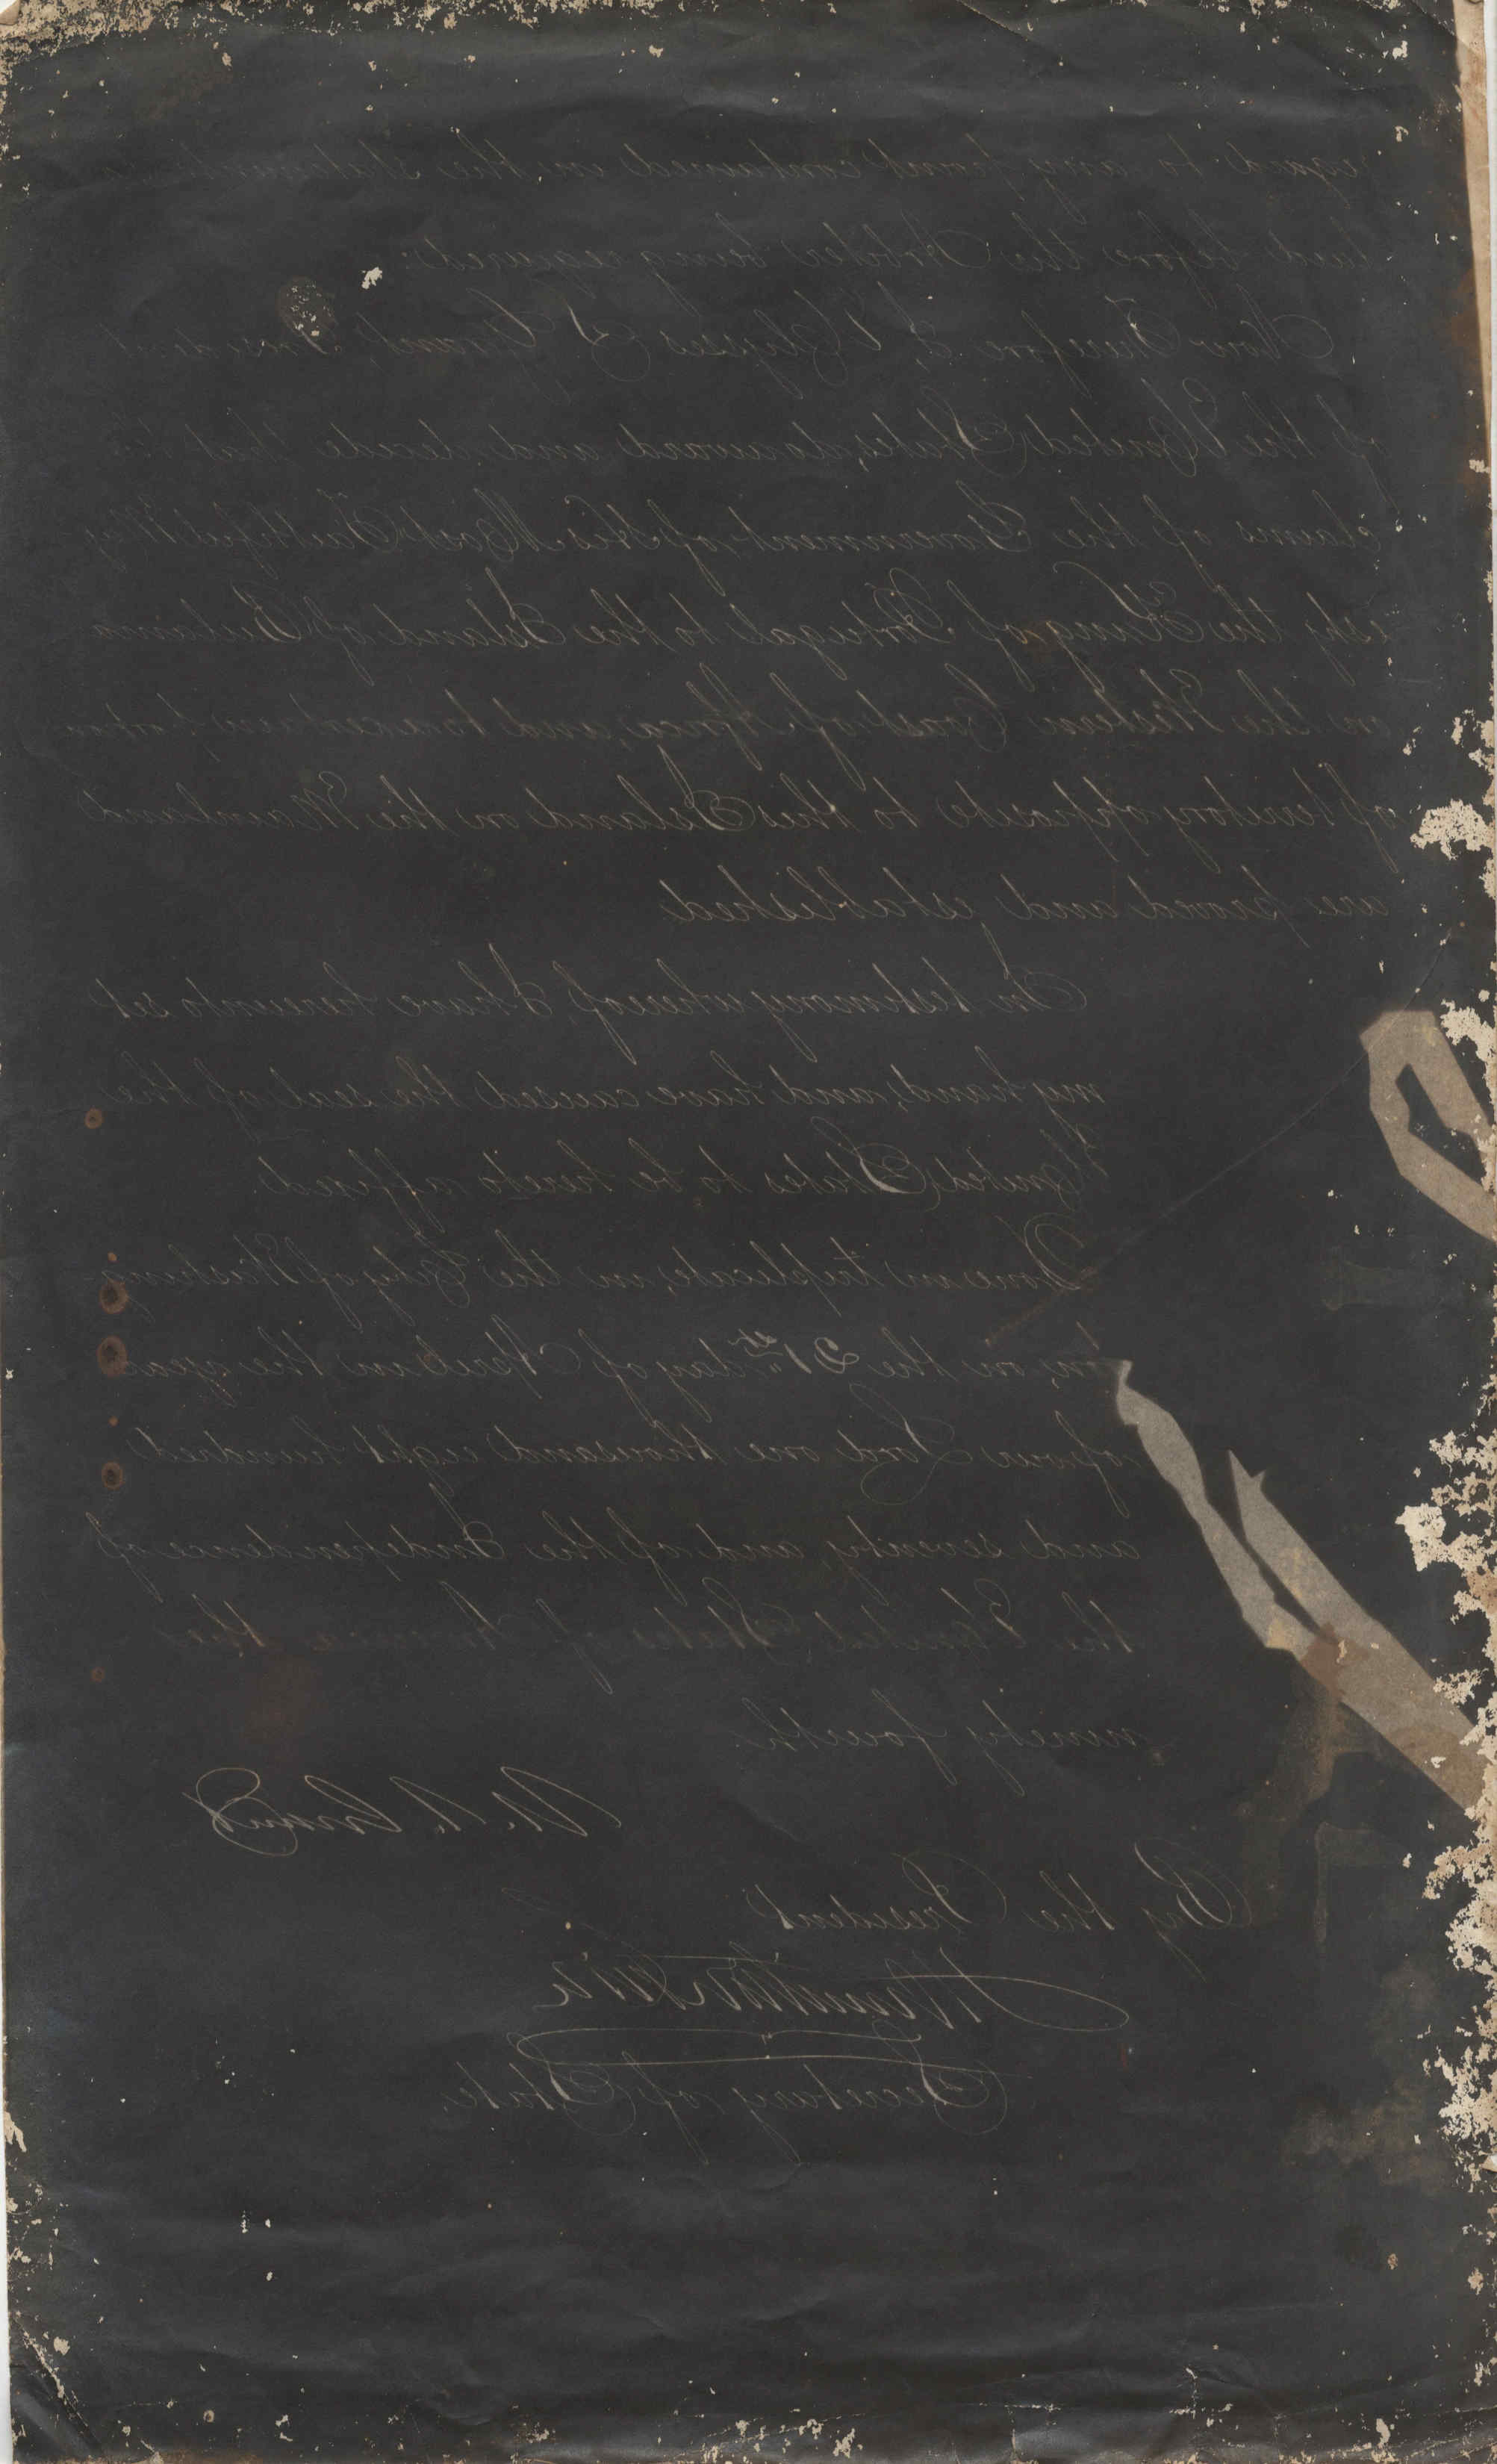 regard to any point contained in the statements
laid before the Arbiter being required:
Now Therefore I, Ulysses S. Grant, President
of the United States, do award and decide that the
claims of the Government of His Most Faithful Maj-
esty the King of Portugal to the Island of Bulama
on the Western Coast of Africa, and to a certain portion
of territory opposite to this Island on the Mainland
are proved and established
In testimony whereof, I have hereunto set
my hand, and have caused the seal of the
United States to be hereto affixed.
Done in triplicate, in the City of Washing-
ton, on the 21st day of April in the year
of our Lord one thousand eight hundred
and seventy, and of the Independence of
the United States of America the
ninety fourth.
U. S. Grant
By the President
Hamilton Fish
Secretary of State.